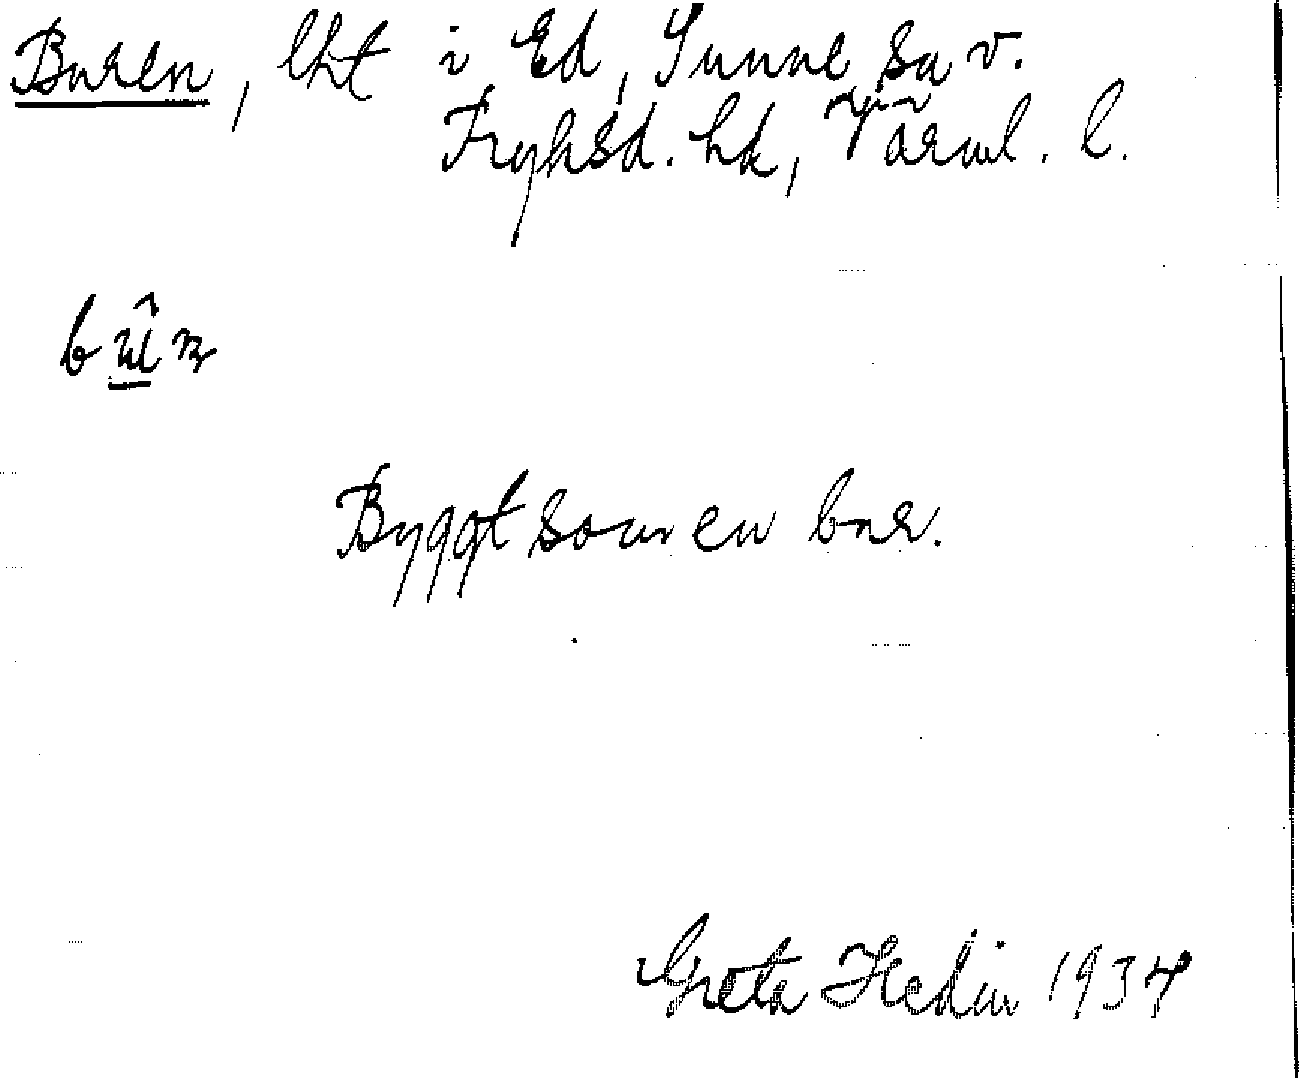 Buren, lht i Ed, Sunne sn v.
Fryksd. hd, Värml. l.
Byggt som en bur.
Greta Hedin 1934